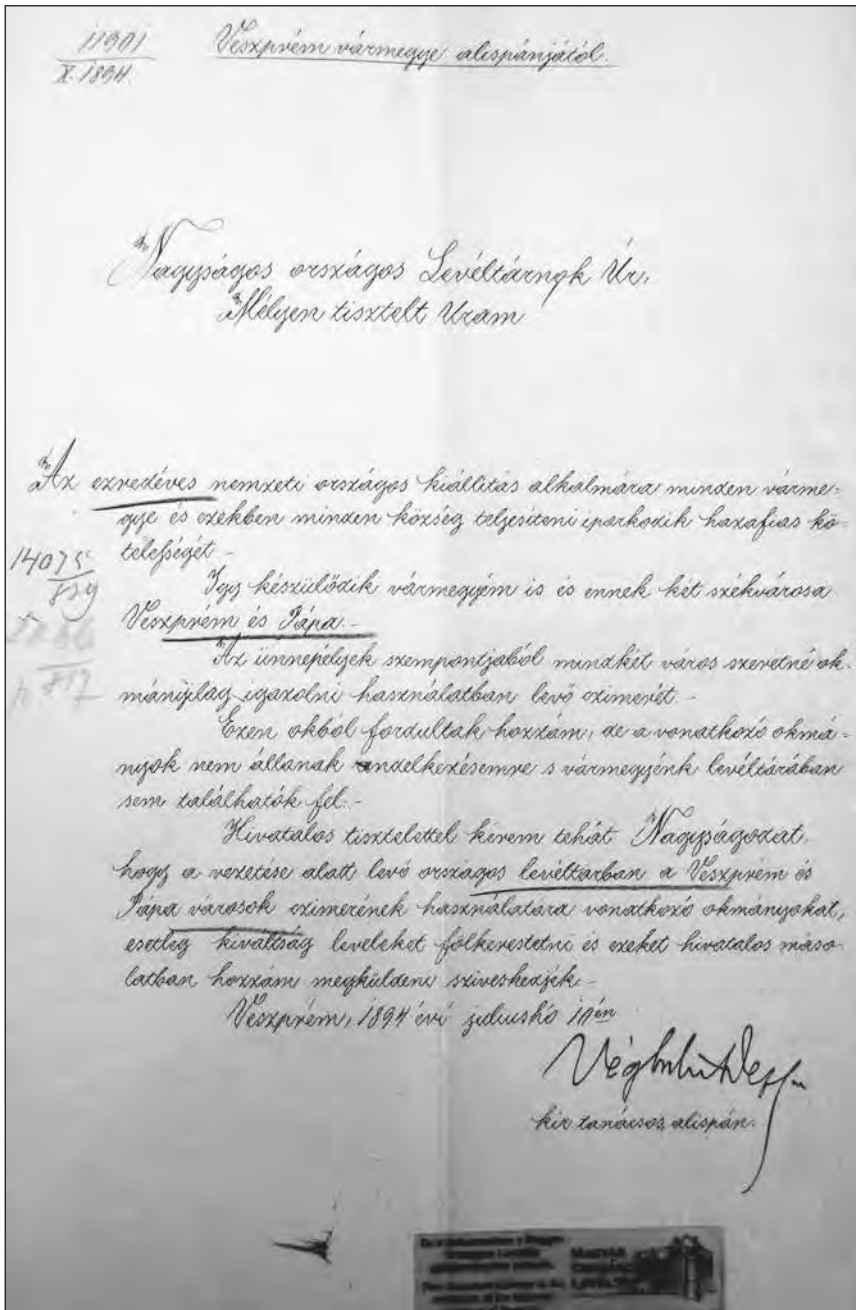 11901
X. 1894.
Veszprém vármegye alispánjától.
Nagyságos országos Levéltárnok Úr,
Mélyen tisztelt Uram
Az ezredéves nemzeti országos kiállitás alkalmára minden várme-
gye és ezekben minden község teljesiteni iparkodik hazafias kö-
telességét –
Igy készülődik vármegyém is és ennek két székvárosa
Veszprém és Pápa. –
Az ünnepélyek szempontjából mindkét város szeretné ok-
mányilag igazolni használatban levő czimerét –
Ezen okból fordultak hozzám, de a vonatkozó okmá-
nyok nem állanak rendelkezésemre s vármegyénk levéltárában
sem találhatók fel. –
Hivatalos tisztelettel kérem tehát Nagyságodat,
hogy a vezetése alatt levő országos levéltárban a Veszprém és
Pápa városok czimerének használatára vonatkozó okmányokat,
esetleg kiváltság leveleket fölkerestetni és ezeket hivatalos máso-
latban hozzám megküldeni sziveskedjék –
Veszprém, 1894 évi juliushó 10én
14075
kir. tanácsos, alispán.
MAGYAR
ORSZÁGOS
LEVÉLTÁR